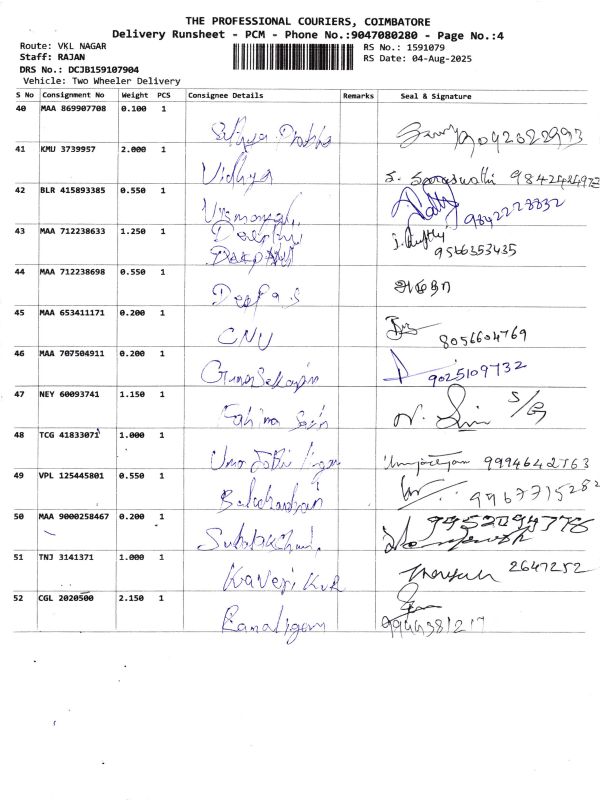 THE PROFESSIONAL COURIERS, COIMBATORE
Delivery Runsheet - PCM - Phone No.:9047080280 - Page No.:4
Route: VKL NAGAR
RS No.: 1591079
Staff: RAJAN
RS Date: 04-Aug-2025
DRS No.: DCJB159107904
Vehicle: Two Wheeler Delivery
S No Consignment No Weight PCS Consignee Details Remarks Seal & Signature
40 MAA 869907708 0.100 1
41 KMU 3739957 2.000 1
Vidhya S. Saraswathi
42 BLR 415893385 0.550 1
9842228832
43 MAA 712238633 1.250 1
9566353435
44 MAA 712238698 0.550 1
Deepa S
45 MAA 653411171 0.200 1
CNU 8056604769
46 MAA 707504911 0.200 1
Gunasekaran 9025109732
47 NEY 60093741 1.150 1
48 TCG 41833071 1.000 1
9994642763
49 VPL 125445801 0.550 1
Balachandran 9967715282
50 MAA 9000258467 0.200 1
9952094776
51 TNJ 3141371 1.000 1
Kaveri KVR 2647252
52 CGL 2020500 2.150 1
Ramaligam